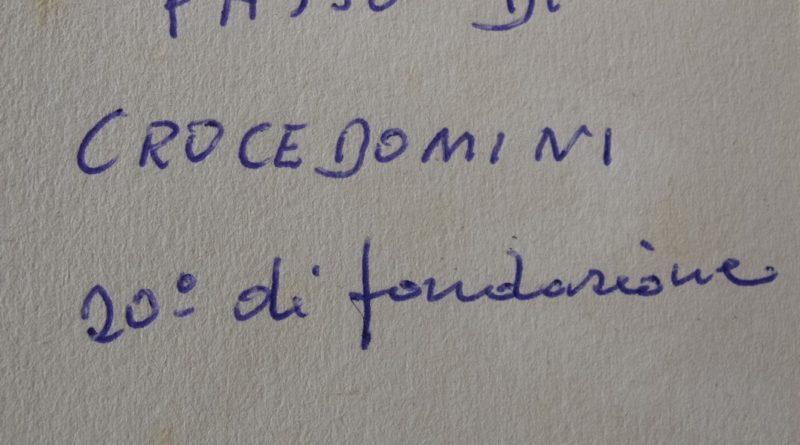 PASSO DI
CROCEDOMINI
20º di fondazione